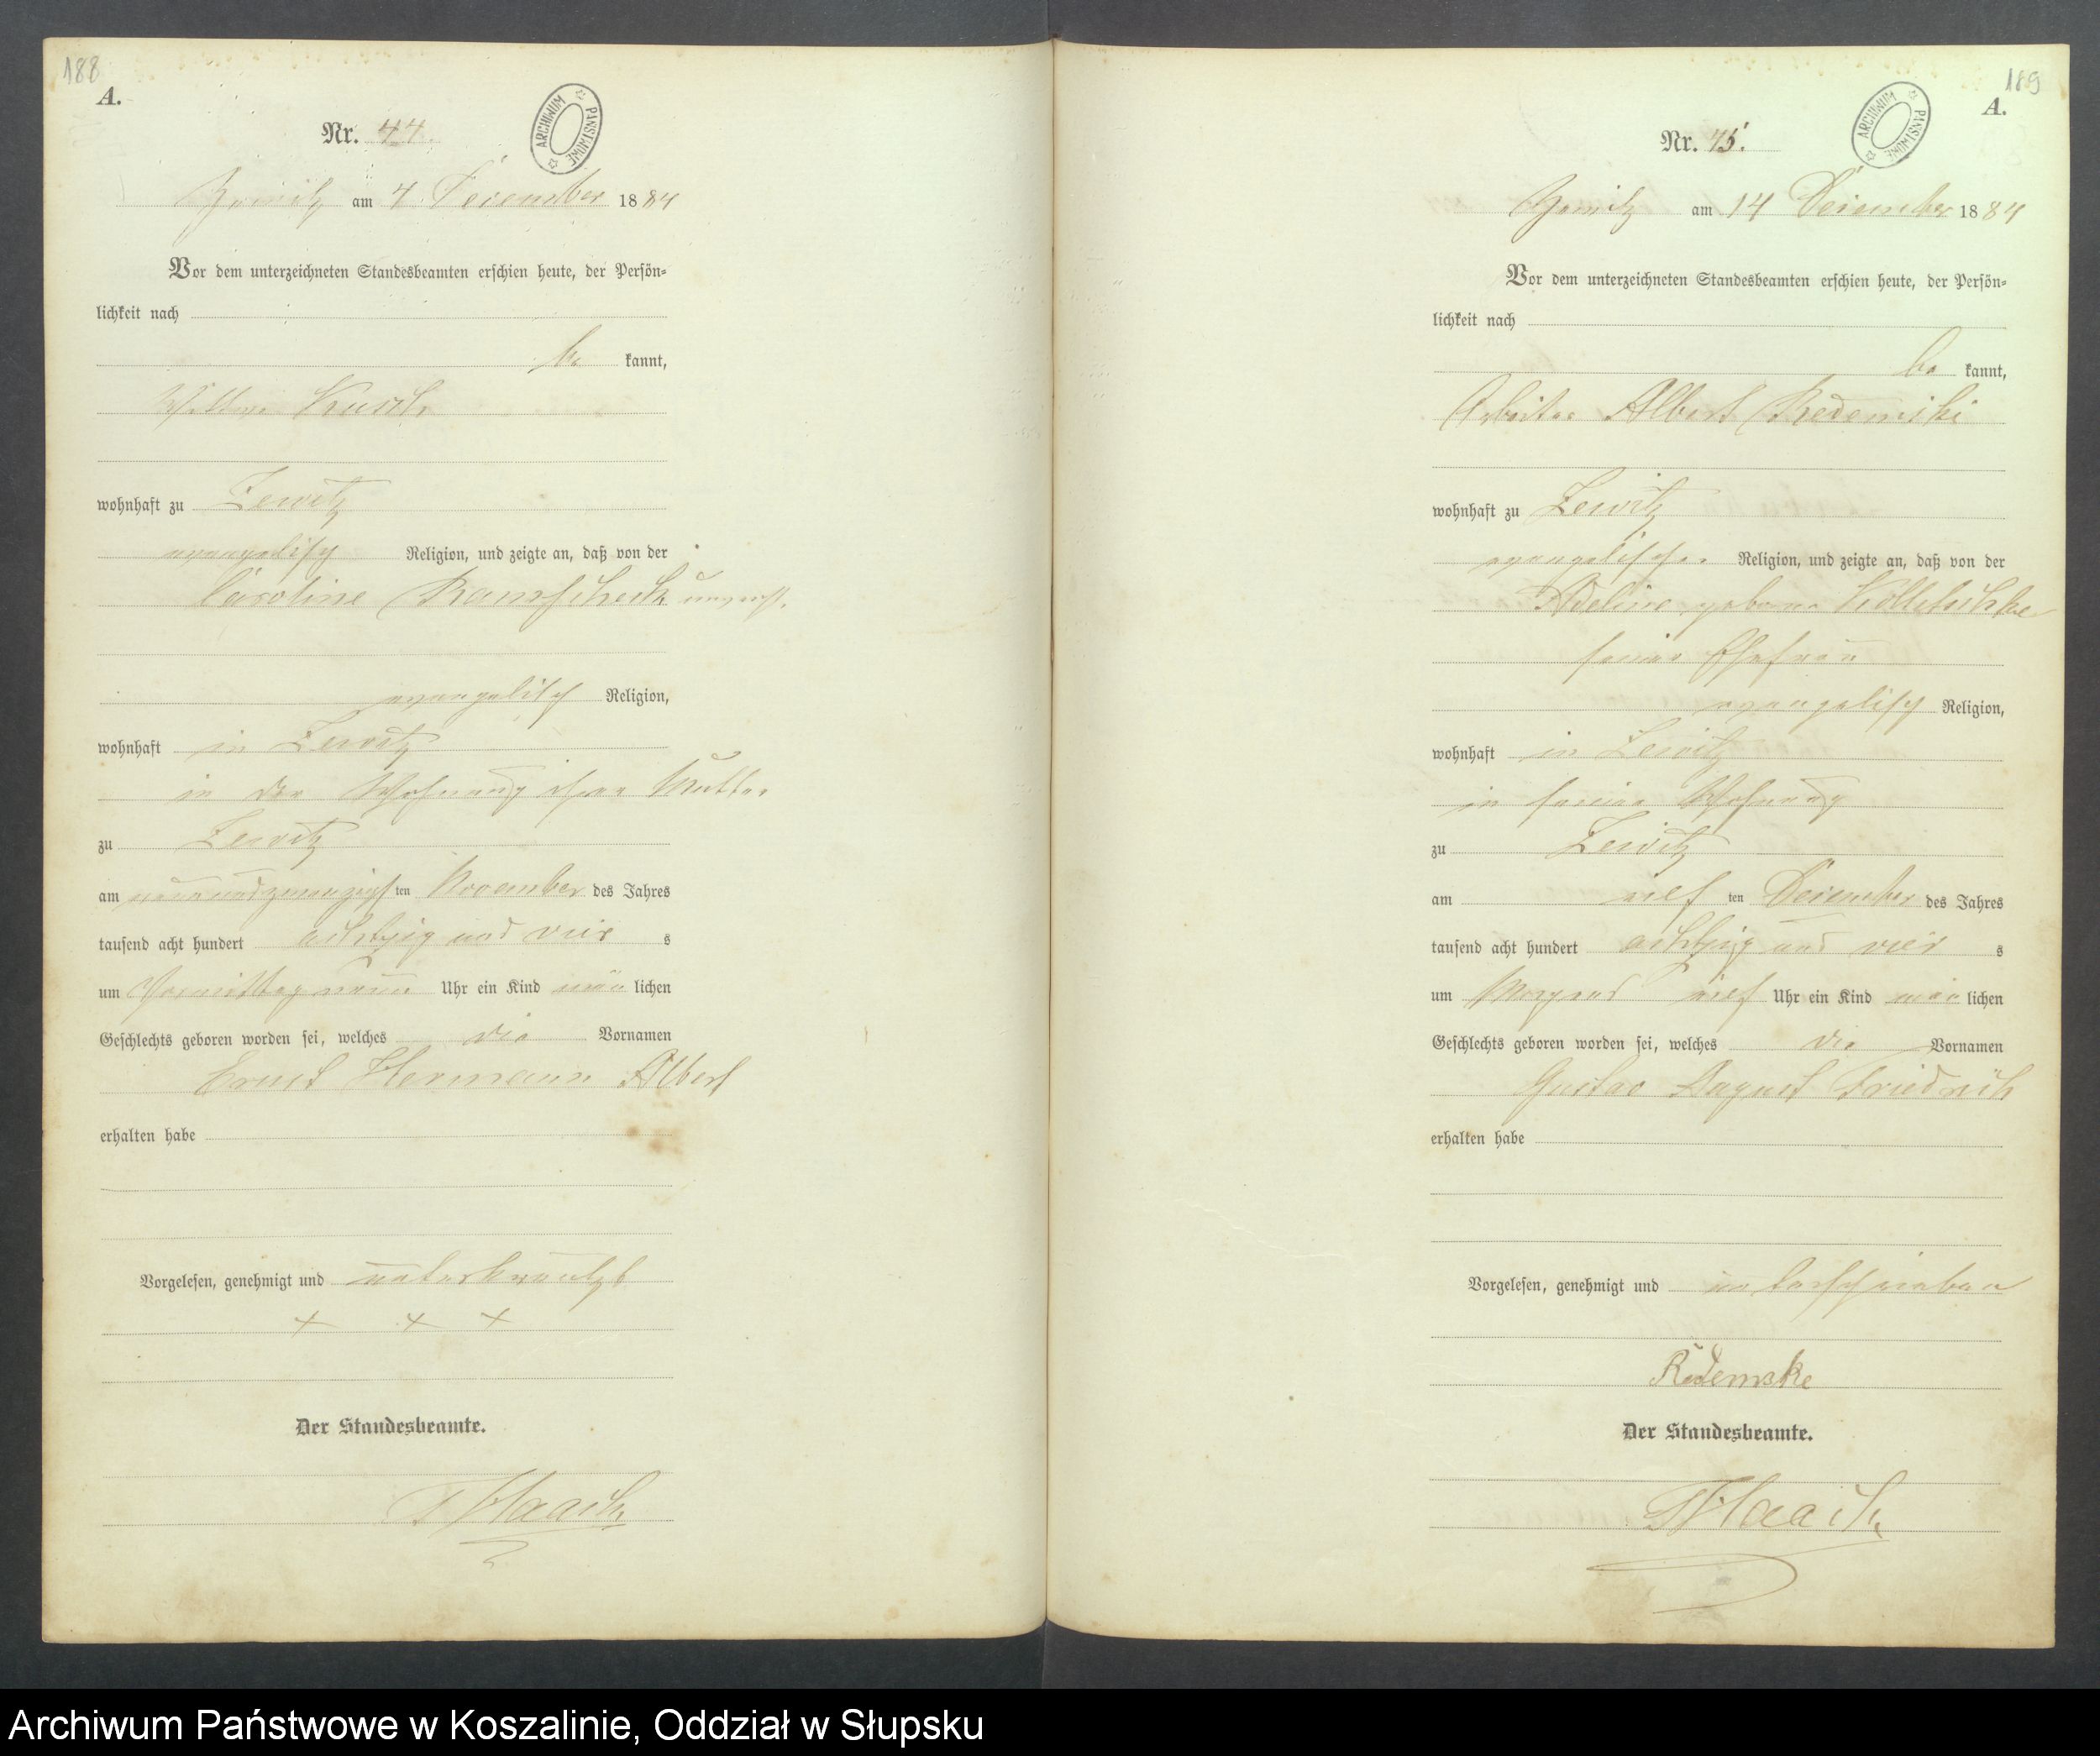 188
A.
ARCHIWUM PAŃSTWOWE
Nr. 44
am 4 December 1884
Vor dem unterzeichneten Standesbeamten erschien heute, der Persön-
lichkeit nach
be kannt,
Wittwe
wohnhaft zu Zewitz
evangelisch Religion, und zeigte an, daß von der
Caroline unvereh.
evangelisch Religion,
wohnhaft in Zewitz
in der Wohnung ihrer Mutter
zu Zewitz
am neunundzwanzigsten November des Jahres
tausend acht hundert achtzig und vier s
um Vormittag neun Uhr ein Kind män lichen
Geschlechts geboren worden sei, welches die Vornamen
Ernst Hermann Albert
erhalten habe
Vorgelesen, genehmigt und unterkreutzt
+ + +
Der Standesbeamte.
Haack
189
A.
ARCHIWUM PAŃSTWOWE
Nr. 45.
am 14 December 1884
Vor dem unterzeichneten Standesbeamten erschien heute, der Persön-
lichkeit nach
be kannt,
Arbeiter Albert Redemski
wohnhaft zu Zewitz
evangelischer Religion, und zeigte an, daß von der
Adeline geborne
seiner Ehefrau
evangelisch Religion,
wohnhaft in Zewitz
in seiner Wohnung
zu Zewitz
am elf ten December des Jahres
tausend acht hundert achtzig und vier s
um Morgens Uhr ein Kind män lichen
Geschlechts geboren worden sei, welches die Vornamen
Gustav August Friedrich
erhalten habe
Vorgelesen, genehmigt und unterschrieben
Redemske
Der Standesbeamte.
Haack
Archiwum Państwowe w Koszalinie, Oddział w Słupsku